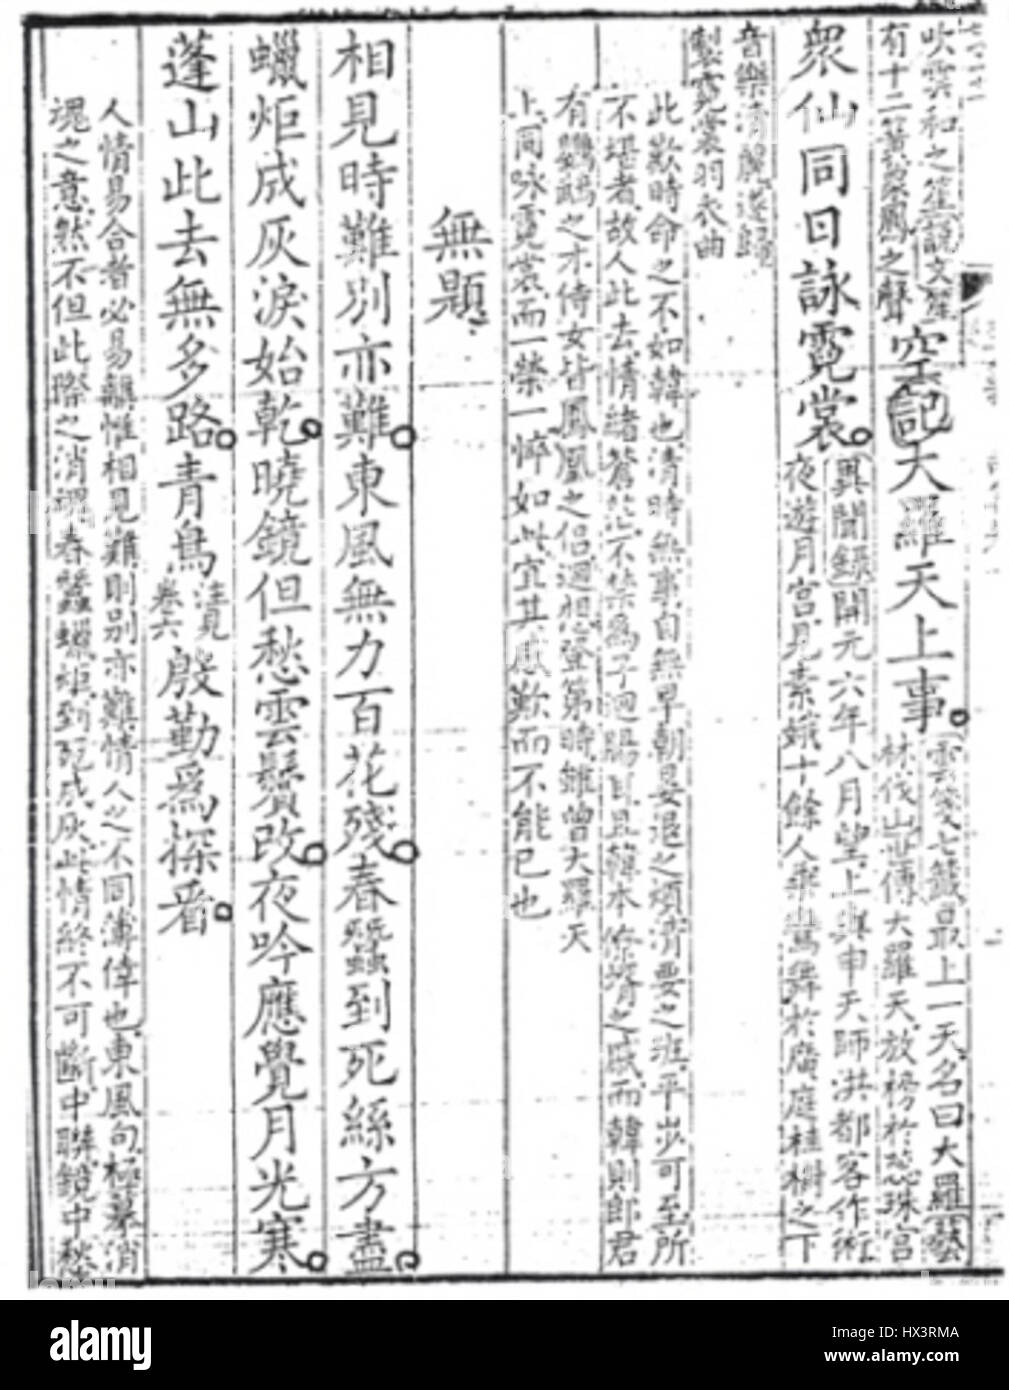 吹雲和之笙說文笙
有十二簧象鳳之聲
空記大羅天上事
雲笈七籤最上一天名曰大羅
林伐山世傳大羅天放榜於蕊珠宮
衆仙同日詠霓裳
異聞錄開元六年八月望上與申天師洪都客作術
夜遊月宮見素娥十餘人乘鸞舞於廣庭桂樹之下
音樂清麗遂歸
製霓裳羽衣曲
此歎時命之不如韓也清時無事自無早朝晏退之煩清要之班平步可至所
不堪者故人此去情緒蒼茫不禁為子迴腸耳且韓本條壻之戚而韓則郎君
有鸚鵡之才侍女皆鳳凰之侶迴想登第時雖曾大羅天
上同咏霓裳而一榮一悴如此宜其感歎而不能已也
無題
相見時難別亦難東風無力百花殘春蠶到死絲方盡
蠟炬成灰淚始乾曉鏡但愁雲鬢改夜吟應覺月光寒
蓬山此去無多路青鳥
注見
卷六
殷勤為探看
人情易合者必易離惟相見難則別亦難情人之不同薄倖也東風句極摹消
魂之意然不但此際之消魂春蠶蠟炬到死成灰此情終不可斷中聯鏡中愁
alamy
HX3RMA
www.alamy.com